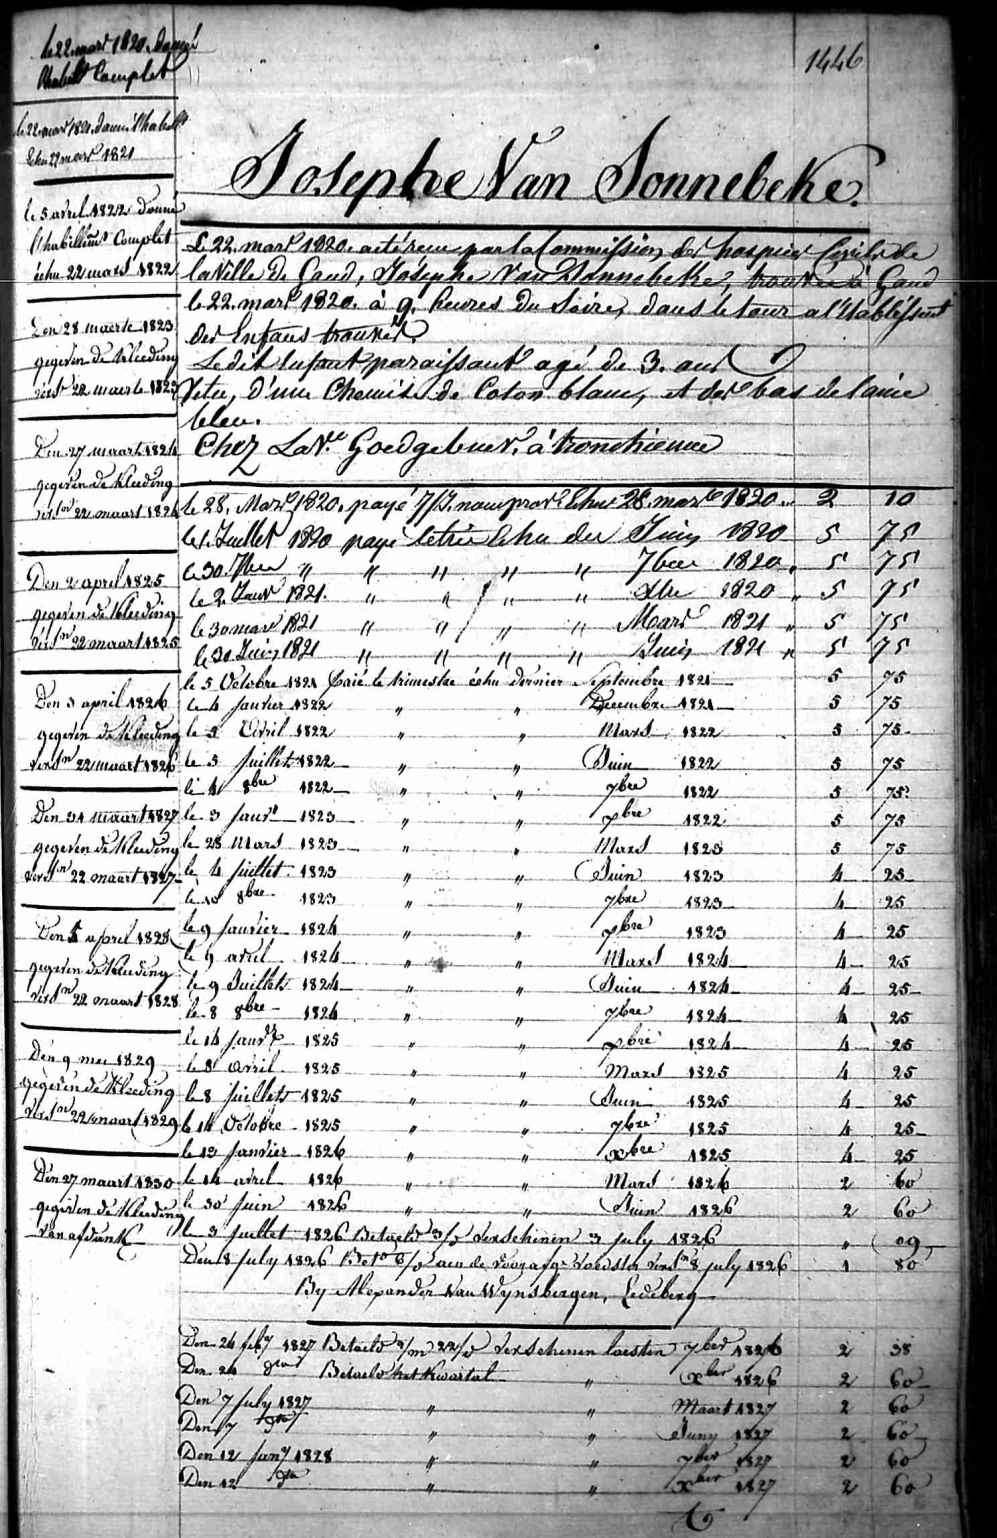 1446
le 22 mars 1820. donné
l'habillt Complet
le 22 mars 1821. donné l'habillt
Echu 22 mars 1821
le 5 avril 1822 donné
l'habillemt Complet
échu 22 mars 1822
Den 28 maerte 1823
gegeven de Kleeding
verst 22 maerte 1823
Den 27 maart 1824
gegeven de Kleeding
verstn 22 maart 1824
Den 2 april 1825
gegeven de Kleeding
verstn 22 maart 1825
Den 3 april 1826
gegeven de Kleeding
verstn 22 maart 1826
Den 31 maart 1827
gegeven de Kleeding
verstn 22 maart 1827
Den 1 april 1828
gegeven de Kleeding
verstn 22 maart 1828
Den 9 mei 1829
gegeven de Kleeding
verstn 22 maart 1829
Den 27 maart 1830
gegeven de Kleeding
van afdank
Josephe Van Sonnebeke.
Le 22 mars 1820. a été reçu par la Commission des hospices Civils de
la Ville de Gand, Josephe Van Sonnebeke, trouvé à Gand
le 22. mars 1820. à 9. heures du Soire, dans le tour a l'Etablissent
des Enfans trouvés
Le dit Enfant paraissant agé de 3. ans
Vetu, d'une Chemise de Coton blanc, et des bas de laine
bleu.
Chez La Ve Goedgebuer, à tronchienne
le 28. Mars 1820. payé 7/J. nouv prove Echu 28. mars 1820 " 2 10
le 1. Juillet 1820 payé le trie Echu du Juin 1820 5 75
le 30. 7bre " " " " " 7bre 1820 " 5 75
le 2. Janvr 1821. " " " " Xbre 1820 " 5 75
le 30 mars 1821 " " " " Mars 1821 " 5 75
le 30 Juin 1821 " " " " Juin 1821 " 5 75
le 5 Octobre 1821 Paié le trimestre échu dernier Septembre 1821 5 75
le 4 janvier 1822 " " Decembre 1821 5 75
le 2 Avril 1822 " " Mars 1822 5 75
le 3 Juillet 1822 " " Juin 1822 5 75
le 4 8bre 1822 " " 7bre 1822 5 75
le 3 janvr 1823 " " xbre 1822 5 75
le 28 Mars 1823 " " Mars 1823 5 75
le 4 juillet 1823 " " Juin 1823 4 25
le 10 8bre 1823 " " 7bre 1823 4 25
le 9 janvier 1824 " " xbre 1823 4 25
le 9 avril 1824 " " Mars 1824 4 25
le 9 Juillet 1824 " " Juin 1824 4 25
le 8 8bre 1824 " " 7bre 1824 4 25
le 14 janvr 1825 " " xbre 1824 4 25
le 8 avril 1825 " " Mars 1825 4 25
le 8 juillet 1825 " " Juin 1825 4 25
le 14 Octobre 1825 " " 7bre 1825 4 25
le 13 janvier 1826 " " xbre 1825 4 25
le 14 avril 1826 " " Mars 1826 2 60
le 30 juin 1826 " " Juin 1826 2 60
le 3 juillet 1826 Betaeld 3/d verschenen 3 july 1826 " 09
Den 8 july 1826 aen de voorafge Voedster verstn 8 july 1826 1 80
By Alexander Van Wynsbergen, Ledeberg
Den 24 feby 1827 Betaeld 2/m 22/d verschenen laesten 7ber 1826 2 38
Den 24 do Betaeld het Kwartal " Xber 1826 2 60
Den 7 july 1827 " " Maart 1827 2 60
Den 7 do " " Juny 1827 2 60
Den 12 Jany 1828 " " 7ber 1827 2 60
Den 12 do " " Xber 1827 2 60